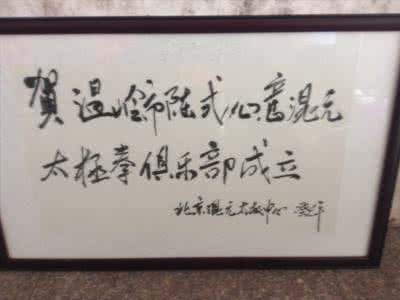 賀温岭市陈式心意混元
太極拳俱乐部成立
北京混元太极中心